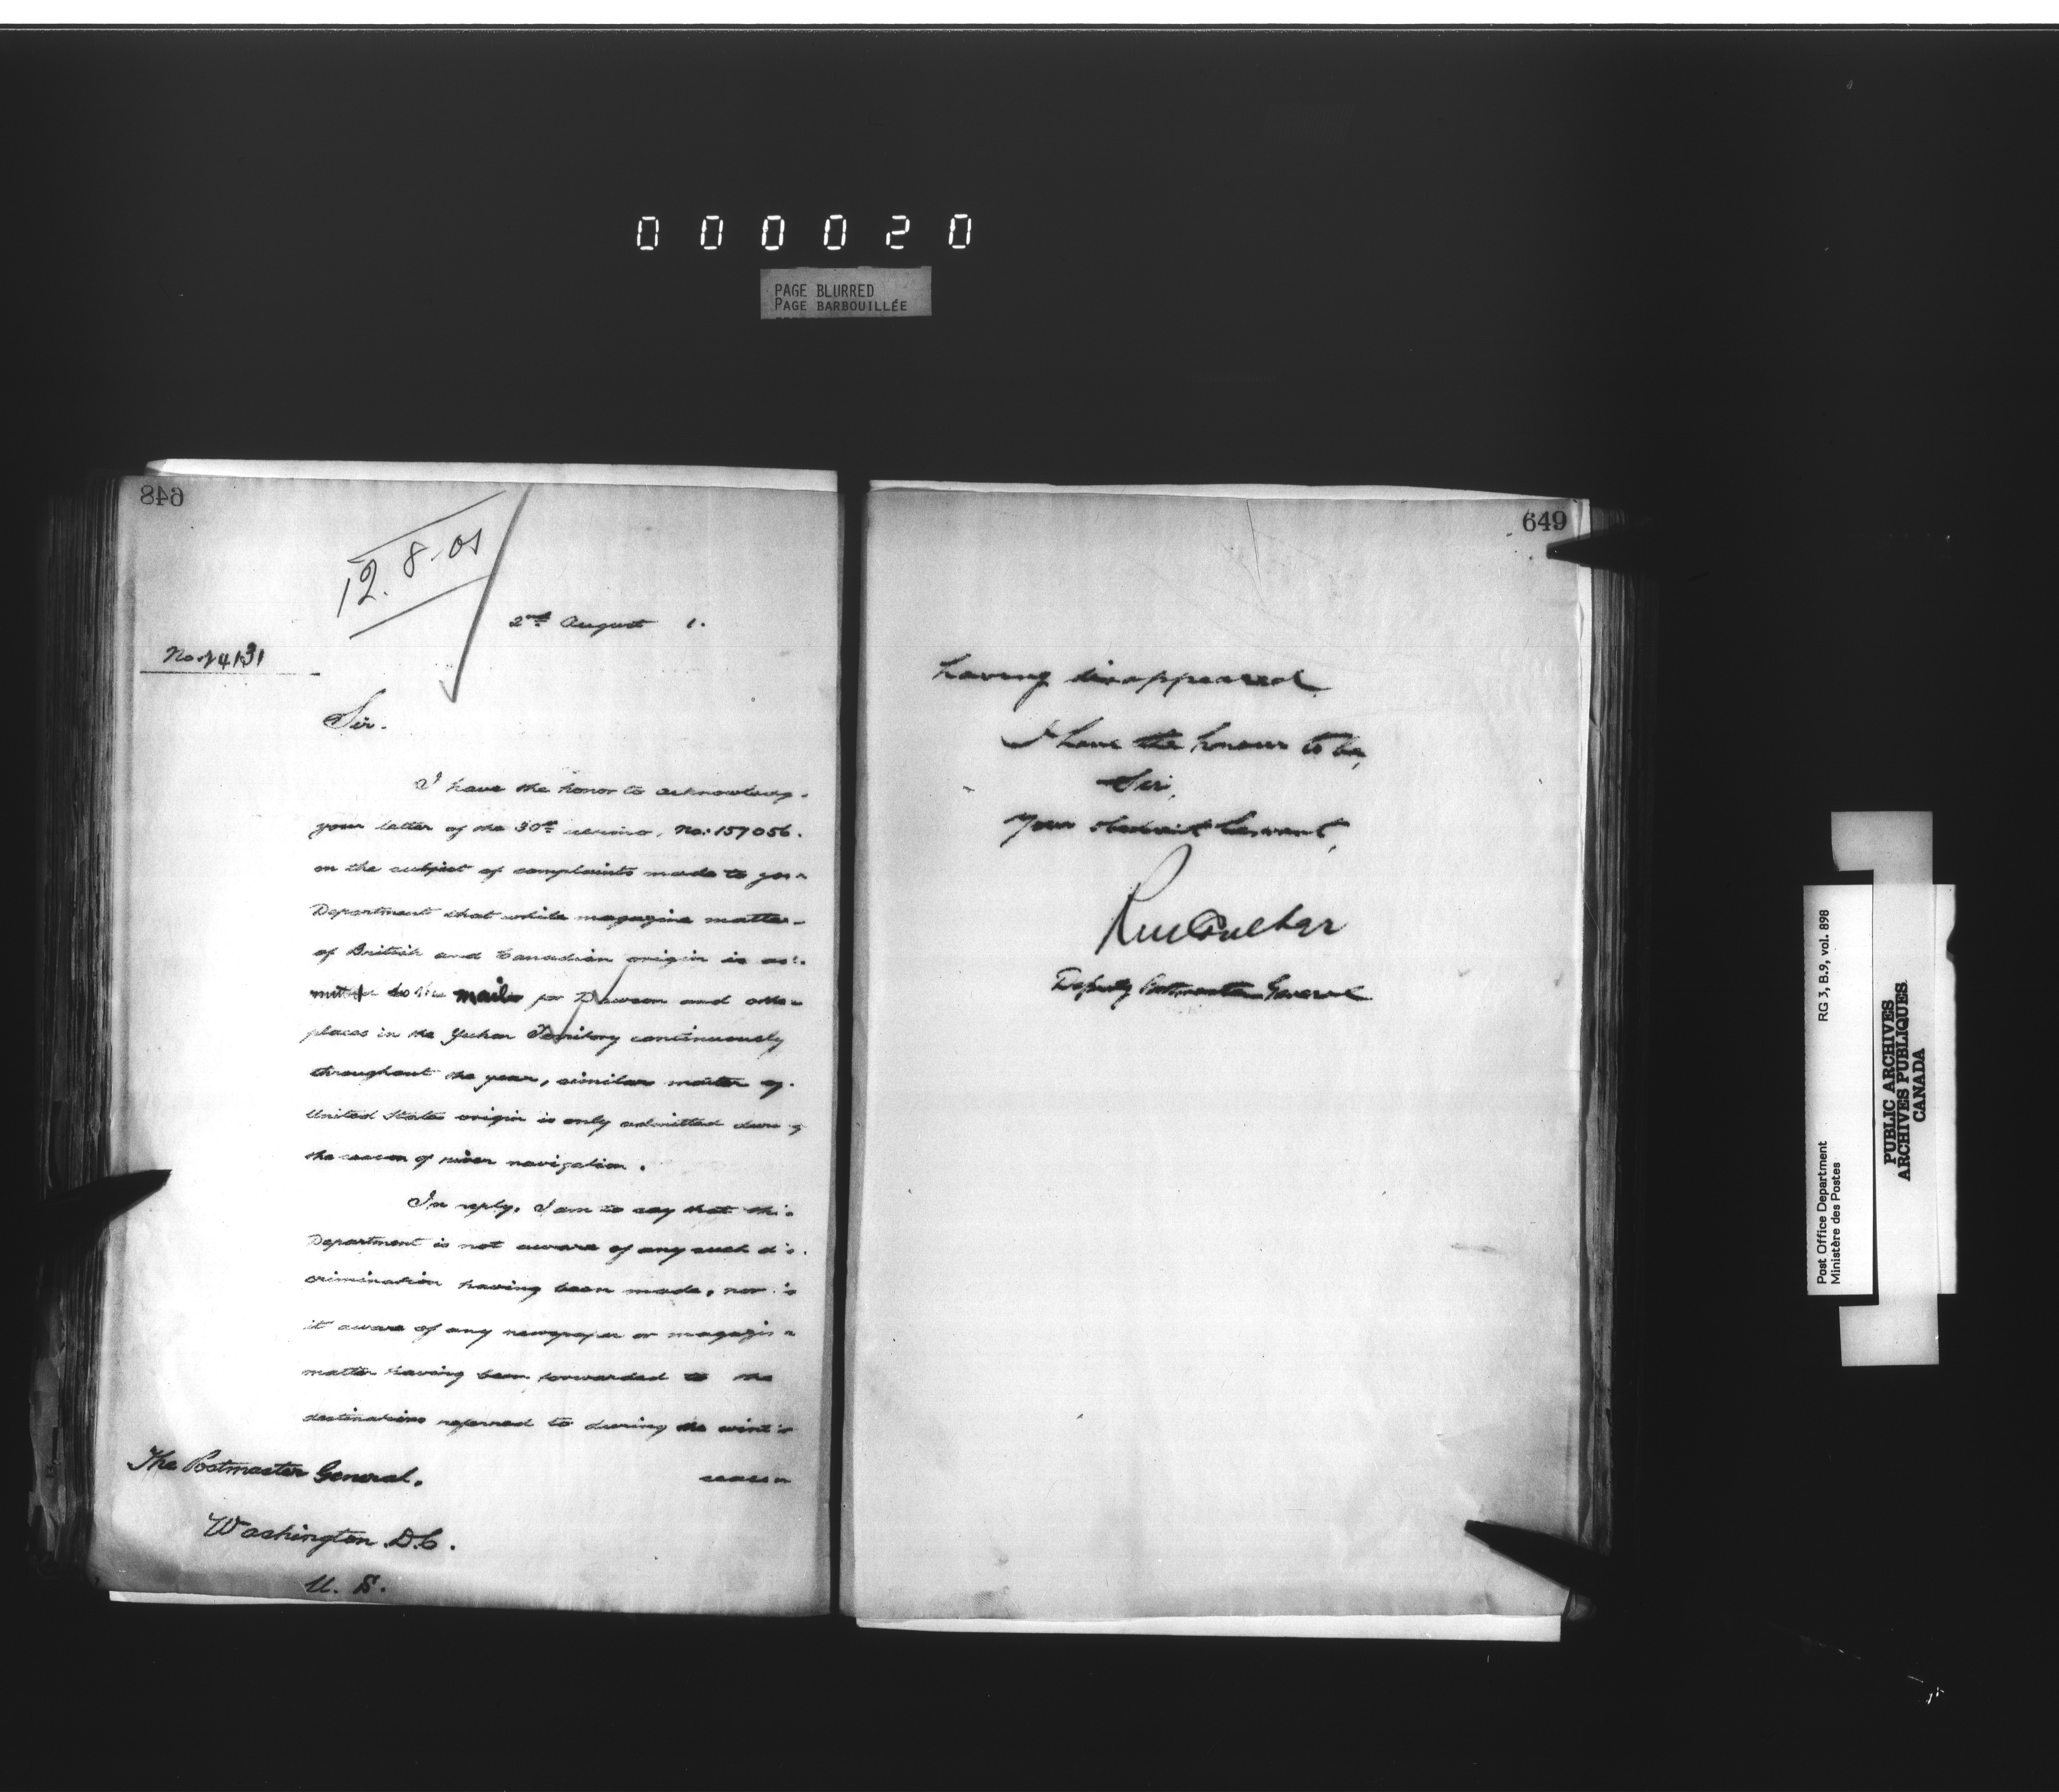 000020
PAGE BLURRED
PAGE BARBOUILLÉE
648
12.8.01
2nd August 1.
No. 74131
Sir.
I have the honor to acknowledg.
your letter of the 30th ultimo, No: 157056.
on the subject of complaints made to your
Department that while magazine matter
of British and Canadian origin is ad-
mitted to the mails for Dawson and other
places in the Yukon Territory continuously
throughout the year, similar matter of
United States origin is only admitted during
the season of river navigation.
In reply, I am to say that this
Department is not aware of any such dis-
crimination having been made, nor is
it aware of any newspaper or magazine
matter having been forwarded to the
destinations referred to during the winter
season
The Postmaster General.
Washington D.C.
U. S.
649
having disappeared
I have the honour to be,
Sir,
Your obedient Servant,
RM Coulter
Deputy Postmaster General
Post Office Department
Ministère des Postes
RG 3, B.9, vol. 898
PUBLIC ARCHIVES
ARCHIVES PUBLIQUES
CANADA